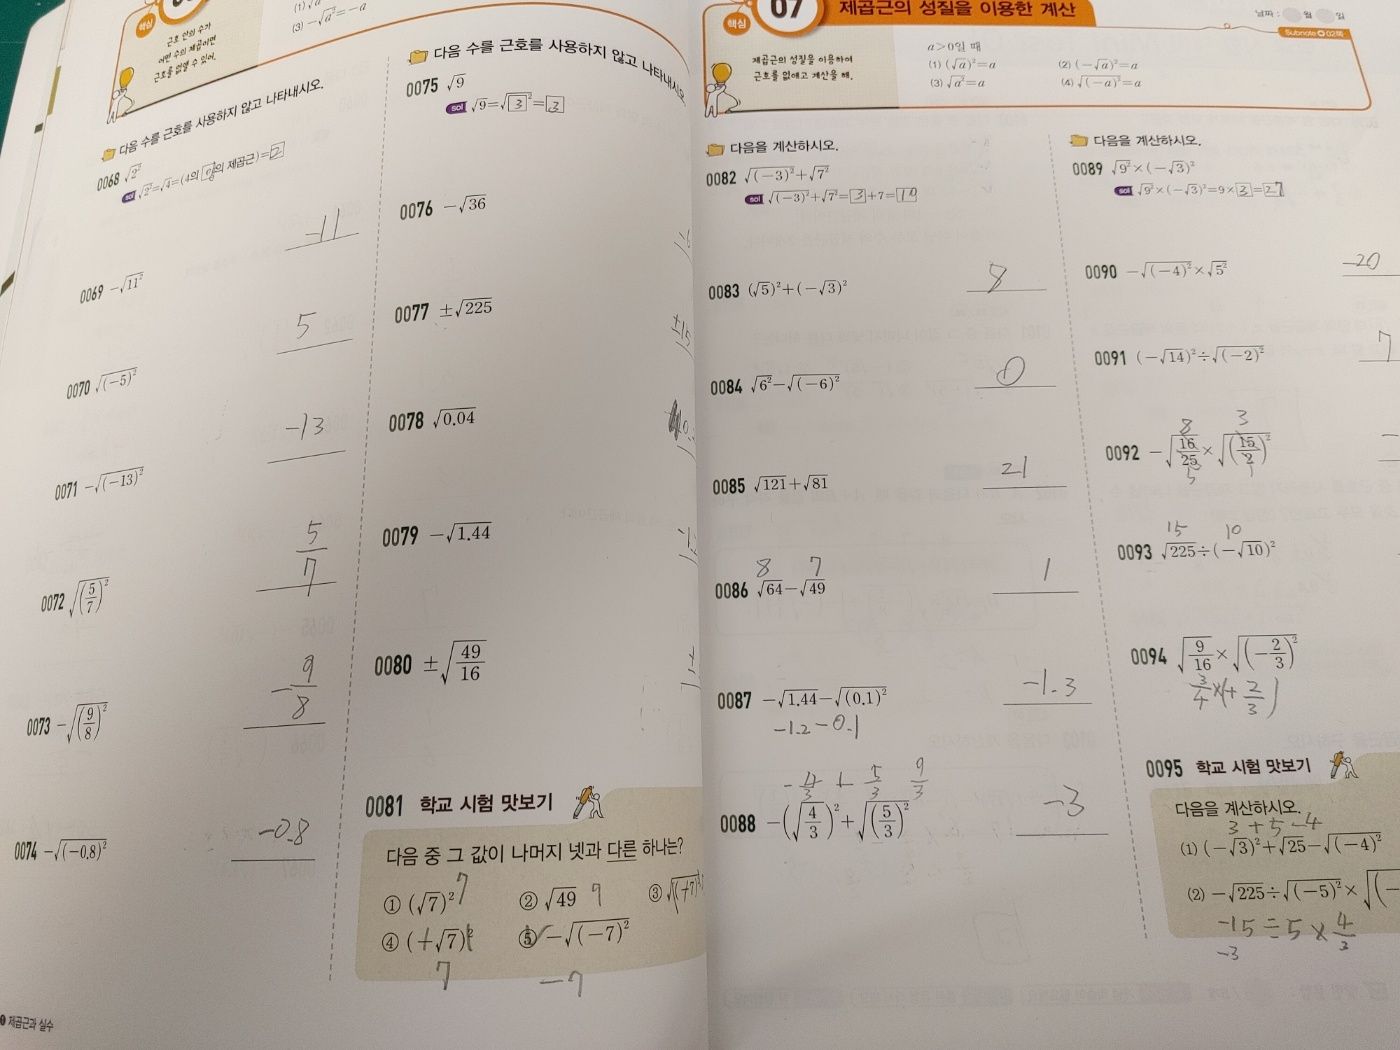 핵심
근호 안의 수가
어떤 수의 제곱이면
근호를 없앨 수 있어.
(3) -√a²=-a
다음 수를 근호를 사용하지 않고 나타내시오.
0068 √2²
sol √2²=√4=(4의 양의 제곱근)=2
-11
0069 -√11²
5
0070 √(-5)²
-13
0071 -√(-13)²
5/7
0072 √(5/7)²
-9/8
0073 -√(9/8)²
-0.8
0074 -√(-0.8)²
제곱근과 실수
다음 수를 근호를 사용하지 않고 나타내시오.
0075 √9
sol √9=√3²=3
0076 -√36
0077 ±√225
±15
0078 √0.04
0079 -√1.44
0080 ±√(49/16)
±
0081 학교 시험 맛보기
다음 중 그 값이 나머지 넷과 다른 하나는?
① (√7)² 7
② √49 7
③
④ (-√7)²
7
⑤ -√(-7)²
-7
핵심
07 제곱근의 성질을 이용한 계산
날짜 : 월 일
Subnote 02쪽
제곱근의 성질을 이용하여
근호를 없애고 계산을 해.
a>0일 때
(1) (√a)²=a (2) (-√a)²=a
(3) √a²=a (4) √(-a)²=a
다음을 계산하시오.
0082 √(-3)²+√7²
sol √(-3)²+√7²=3+7=10
0083 (√5)²+(-√3)²
8
0084 √6²-√(-6)²
0
0085 √121+√81
21
8 7
0086 √64-√49
1
0087 -√1.44-√(0.1)²
-1.3
-1.2-0.1
-4/3 + 5/3 9/3
0088 -(√(4/3))²+√(5/3)²
-3
다음을 계산하시오.
0089 √9²×(-√3)²
sol √9²×(-√3)²=9×3=27
0090 -√(-4)²×√5²
-20
0091 (-√14)²÷√(-2)²
7
8 3
0092 -√(16/25)×√(15/2)²
5 1
15 10
0093 √225÷(-√10)²
0094 √(9/16)×√(-2/3)²
3/4×(+2/3)
0095 학교 시험 맛보기
다음을 계산하시오.
3+5-4
(1) (-√3)²+√25-√(-4)²
(2) -√225÷√(-5)²×
-15÷5×4/3
-3